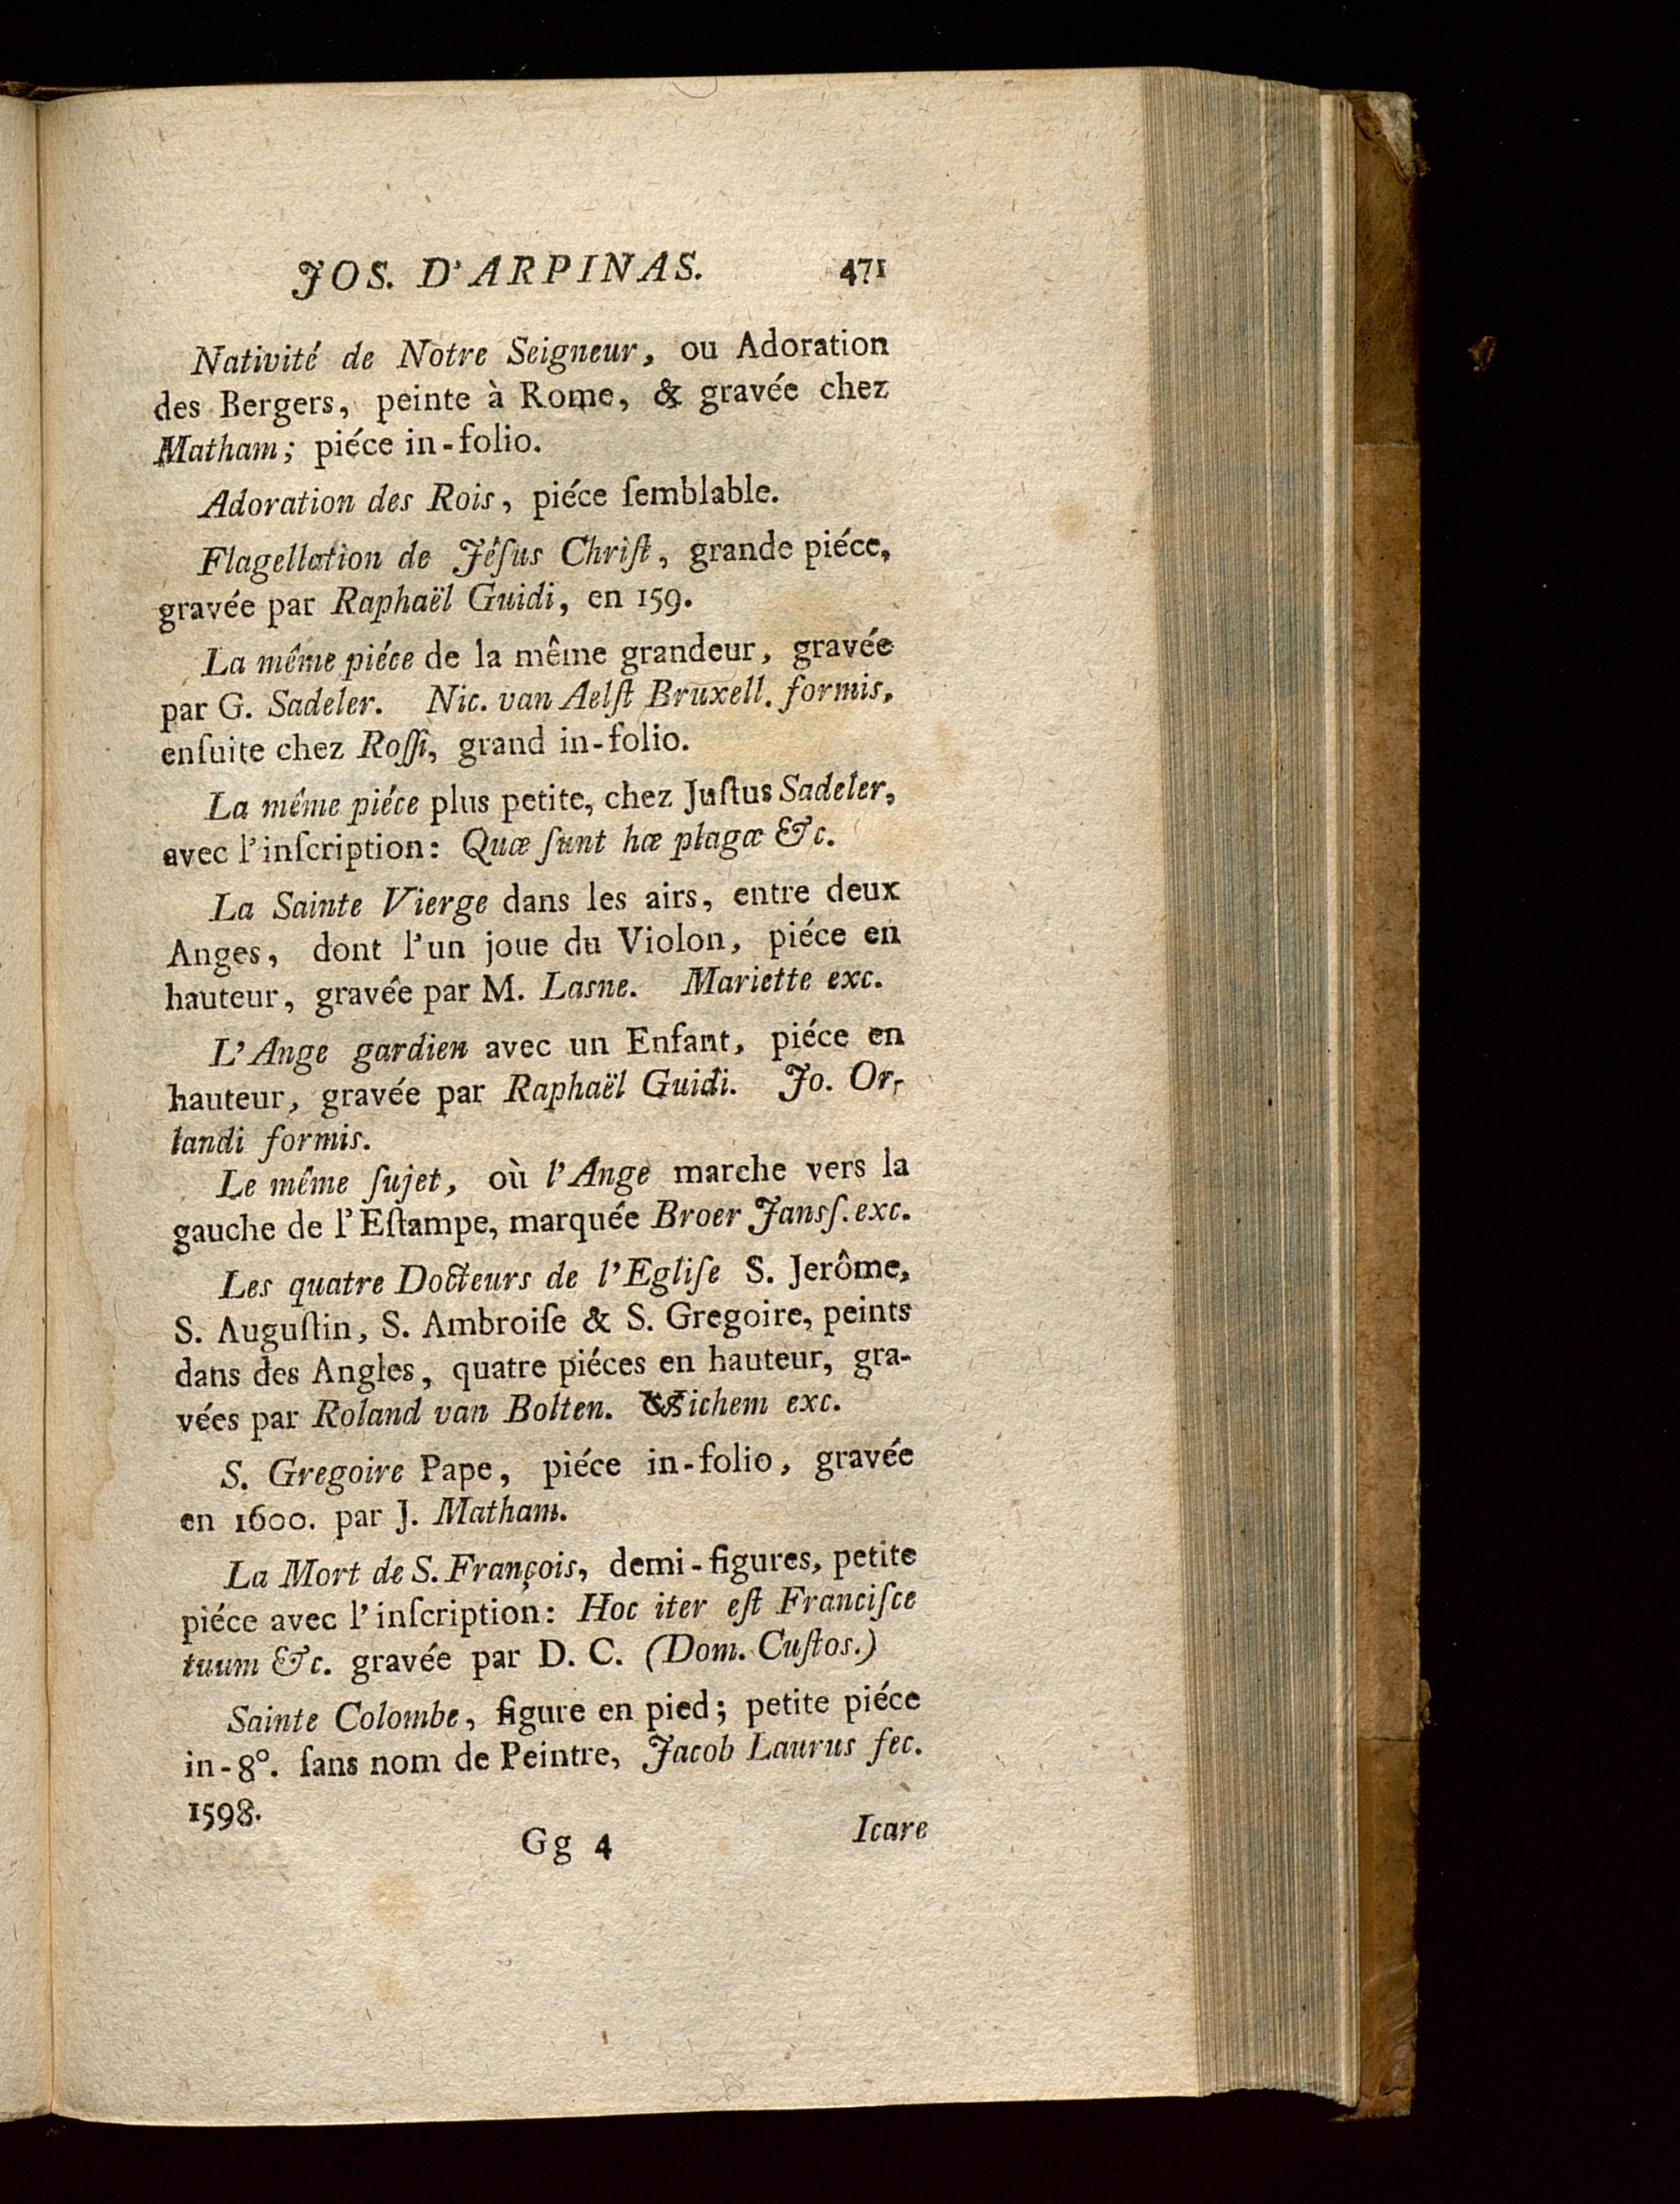 JOS. D'ARPINAS. 471
Nativité de Notre Seigneur, ou Adoration
des Bergers, peinte à Rome, & gravée chez
Matham; piéce in-folio.
Adoration des Rois, piéce ſemblable.
Flagellation de Jéſus Chriſt, grande piéce,
gravée par Raphaël Guidi, en 159.
La même piéce de la même grandeur, gravée
par G. Sadeler. Nic. van Aelſt Bruxell. formis,
enſuite chez Roſſi, grand in-folio.
La même piéce plus petite, chez Juſtus Sadeler,
avec l'inſcription: Quæ ſunt hæ plagæ &c.
La Sainte Vierge dans les airs, entre deux
Anges, dont l'un joue du Violon, piéce en
hauteur, gravée par M. Lasne. Mariette exc.
L'Ange gardien avec un Enfant, piéce en
hauteur, gravée par Raphaël Guidi. Jo. Or-
landi formis.
Le même ſujet, où l'Ange marche vers la
gauche de l'Eſtampe, marquée Broer Jansſ. exc.
Les quatre Docteurs de l'Egliſe S. Jerôme,
S. Auguſtin, S. Ambroiſe & S. Gregoire, peints
dans des Angles, quatre piéces en hauteur, gra-
vées par Roland van Bolten. exc.
S. Gregoire Pape, piéce in-folio, gravée
en 1600. par J. Matham.
La Mort de S. François, demi-figures, petite
piéce avec l'inſcription: Hoc iter eſt Franciſce
tuum &c. gravée par D. C. (Dom. Cuſtos.)
Sainte Colombe, figure en pied; petite piéce
in-8°. ſans nom de Peintre, Jacob Laurus fec.
1598.
Gg 4 Icare